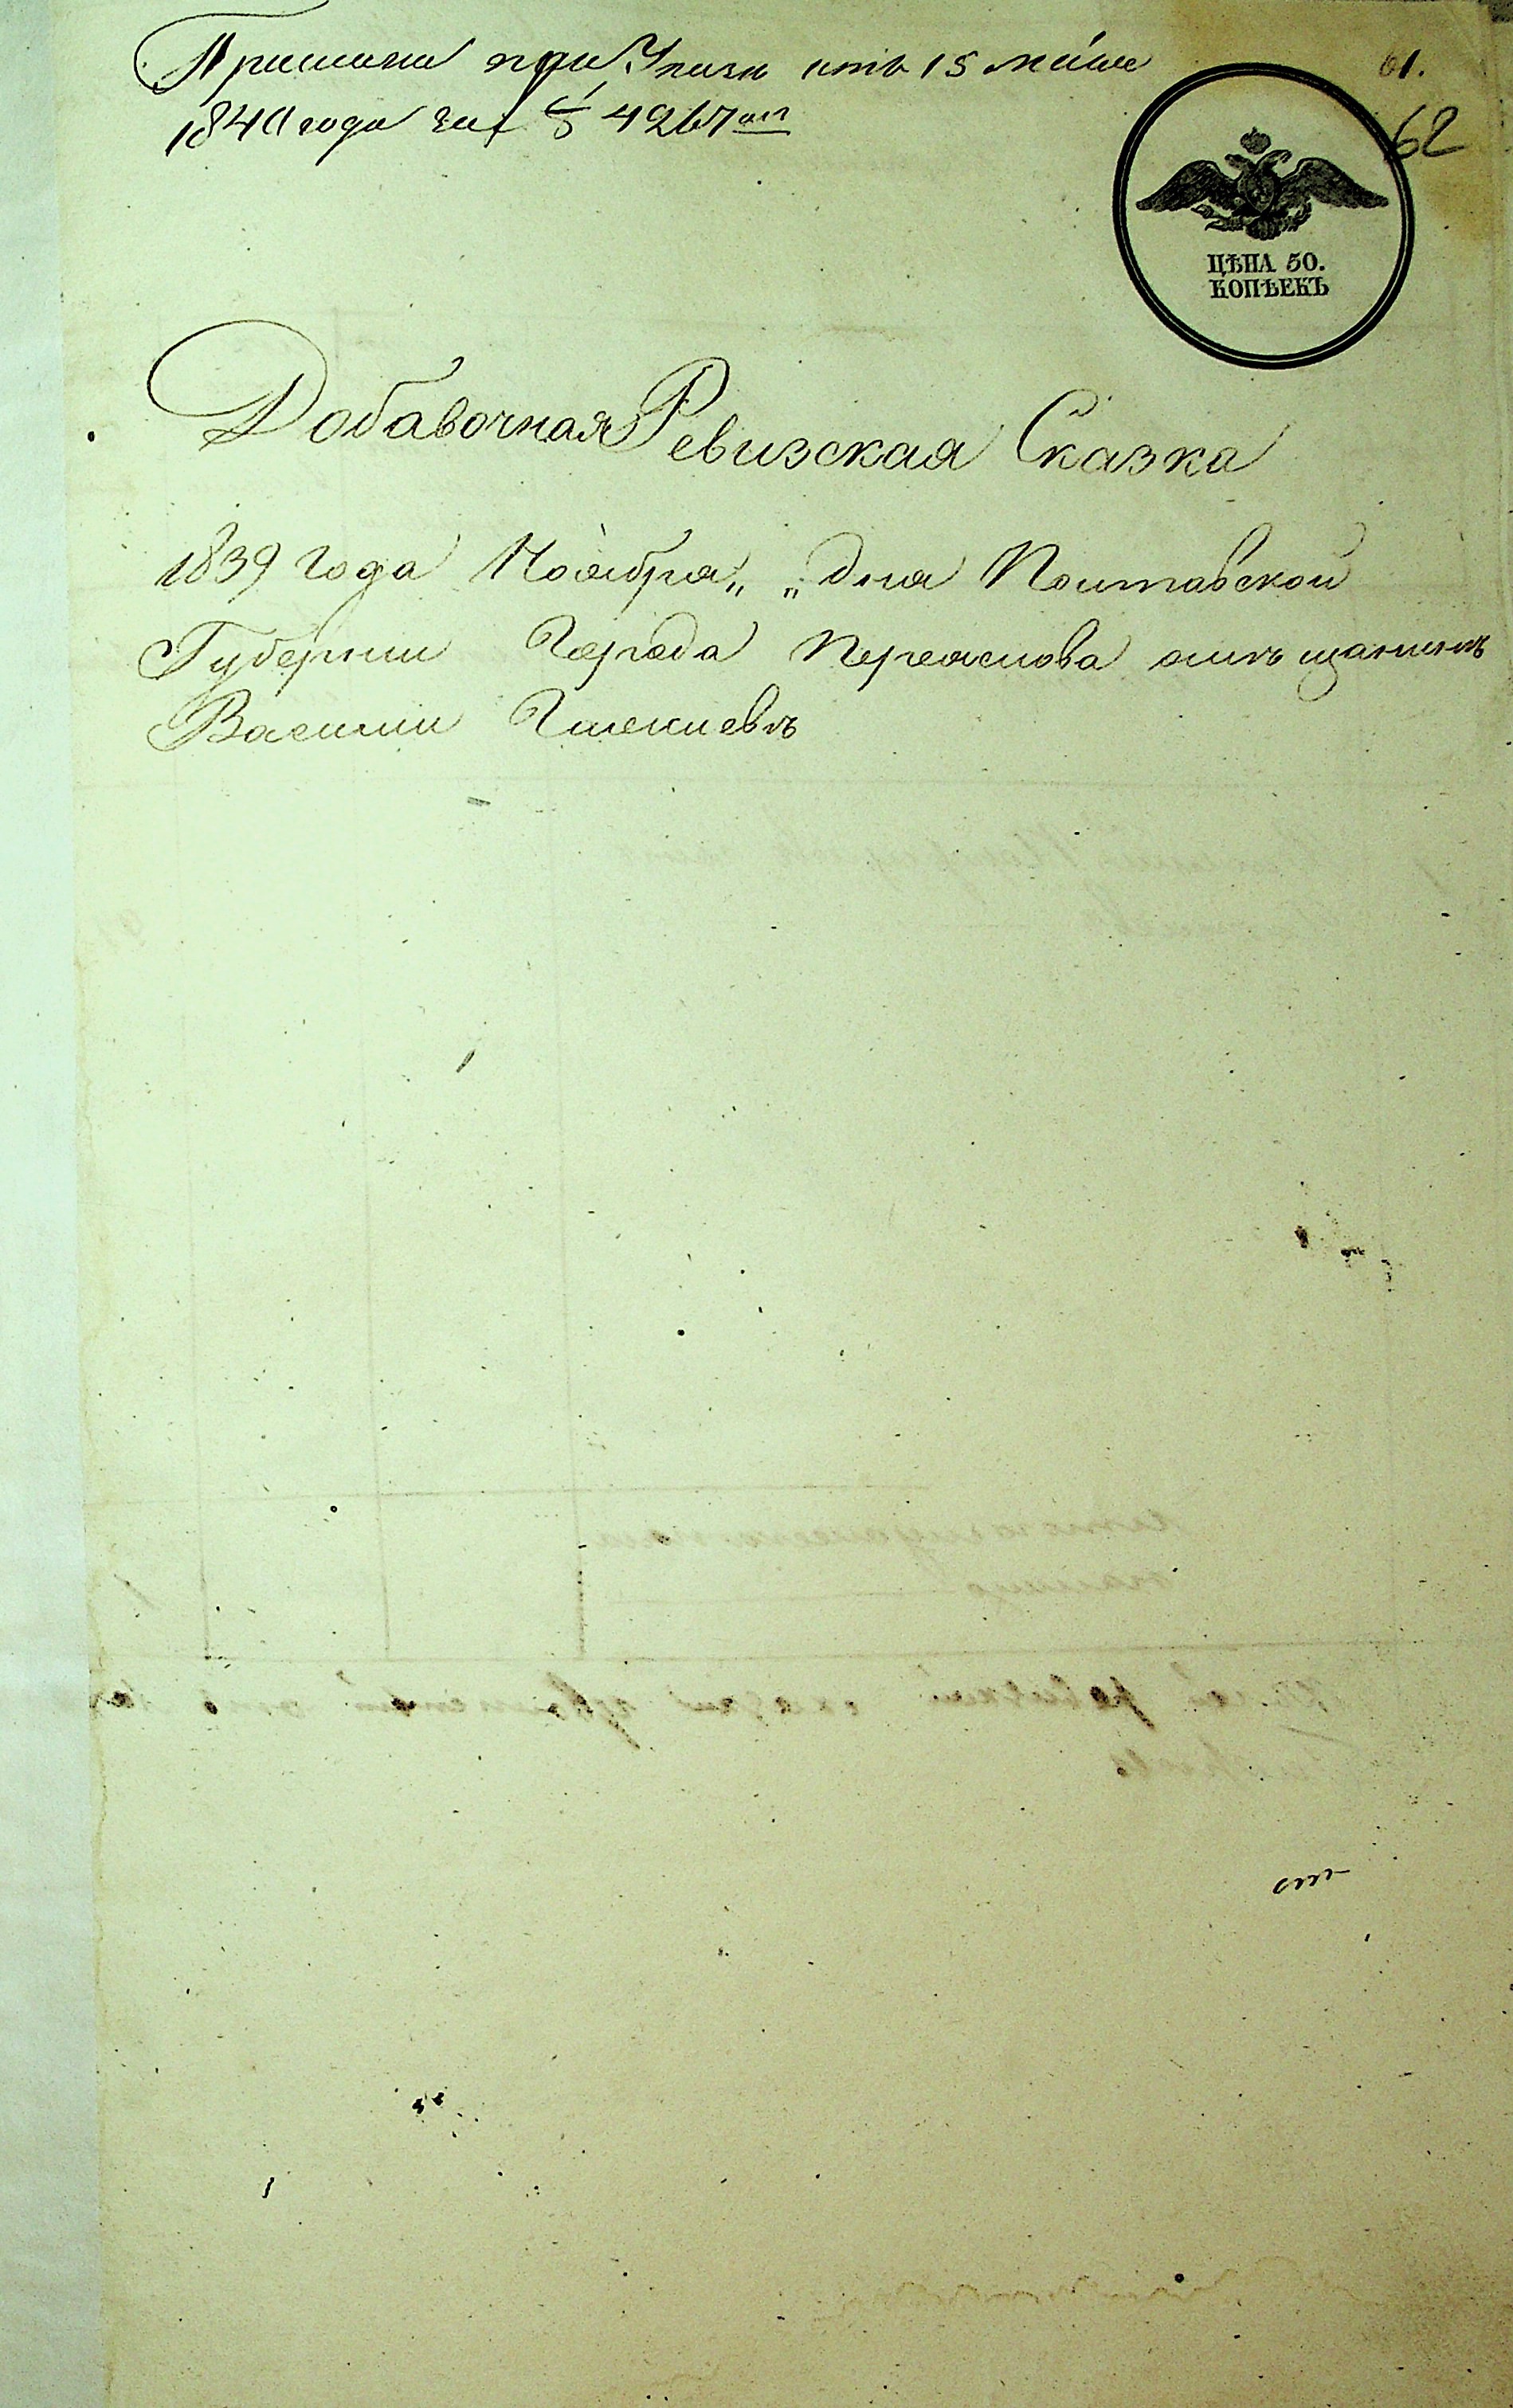 при Указѣ отъ 15 маiя
61.
1840 года за № 4267
62
ЦѢНА 50.
КОПѢЕКЪ
Добавочная Ревизская Сказка
1839 года Ноября „ „ дня Полтавской
Губернии Города Переяслова
Василий